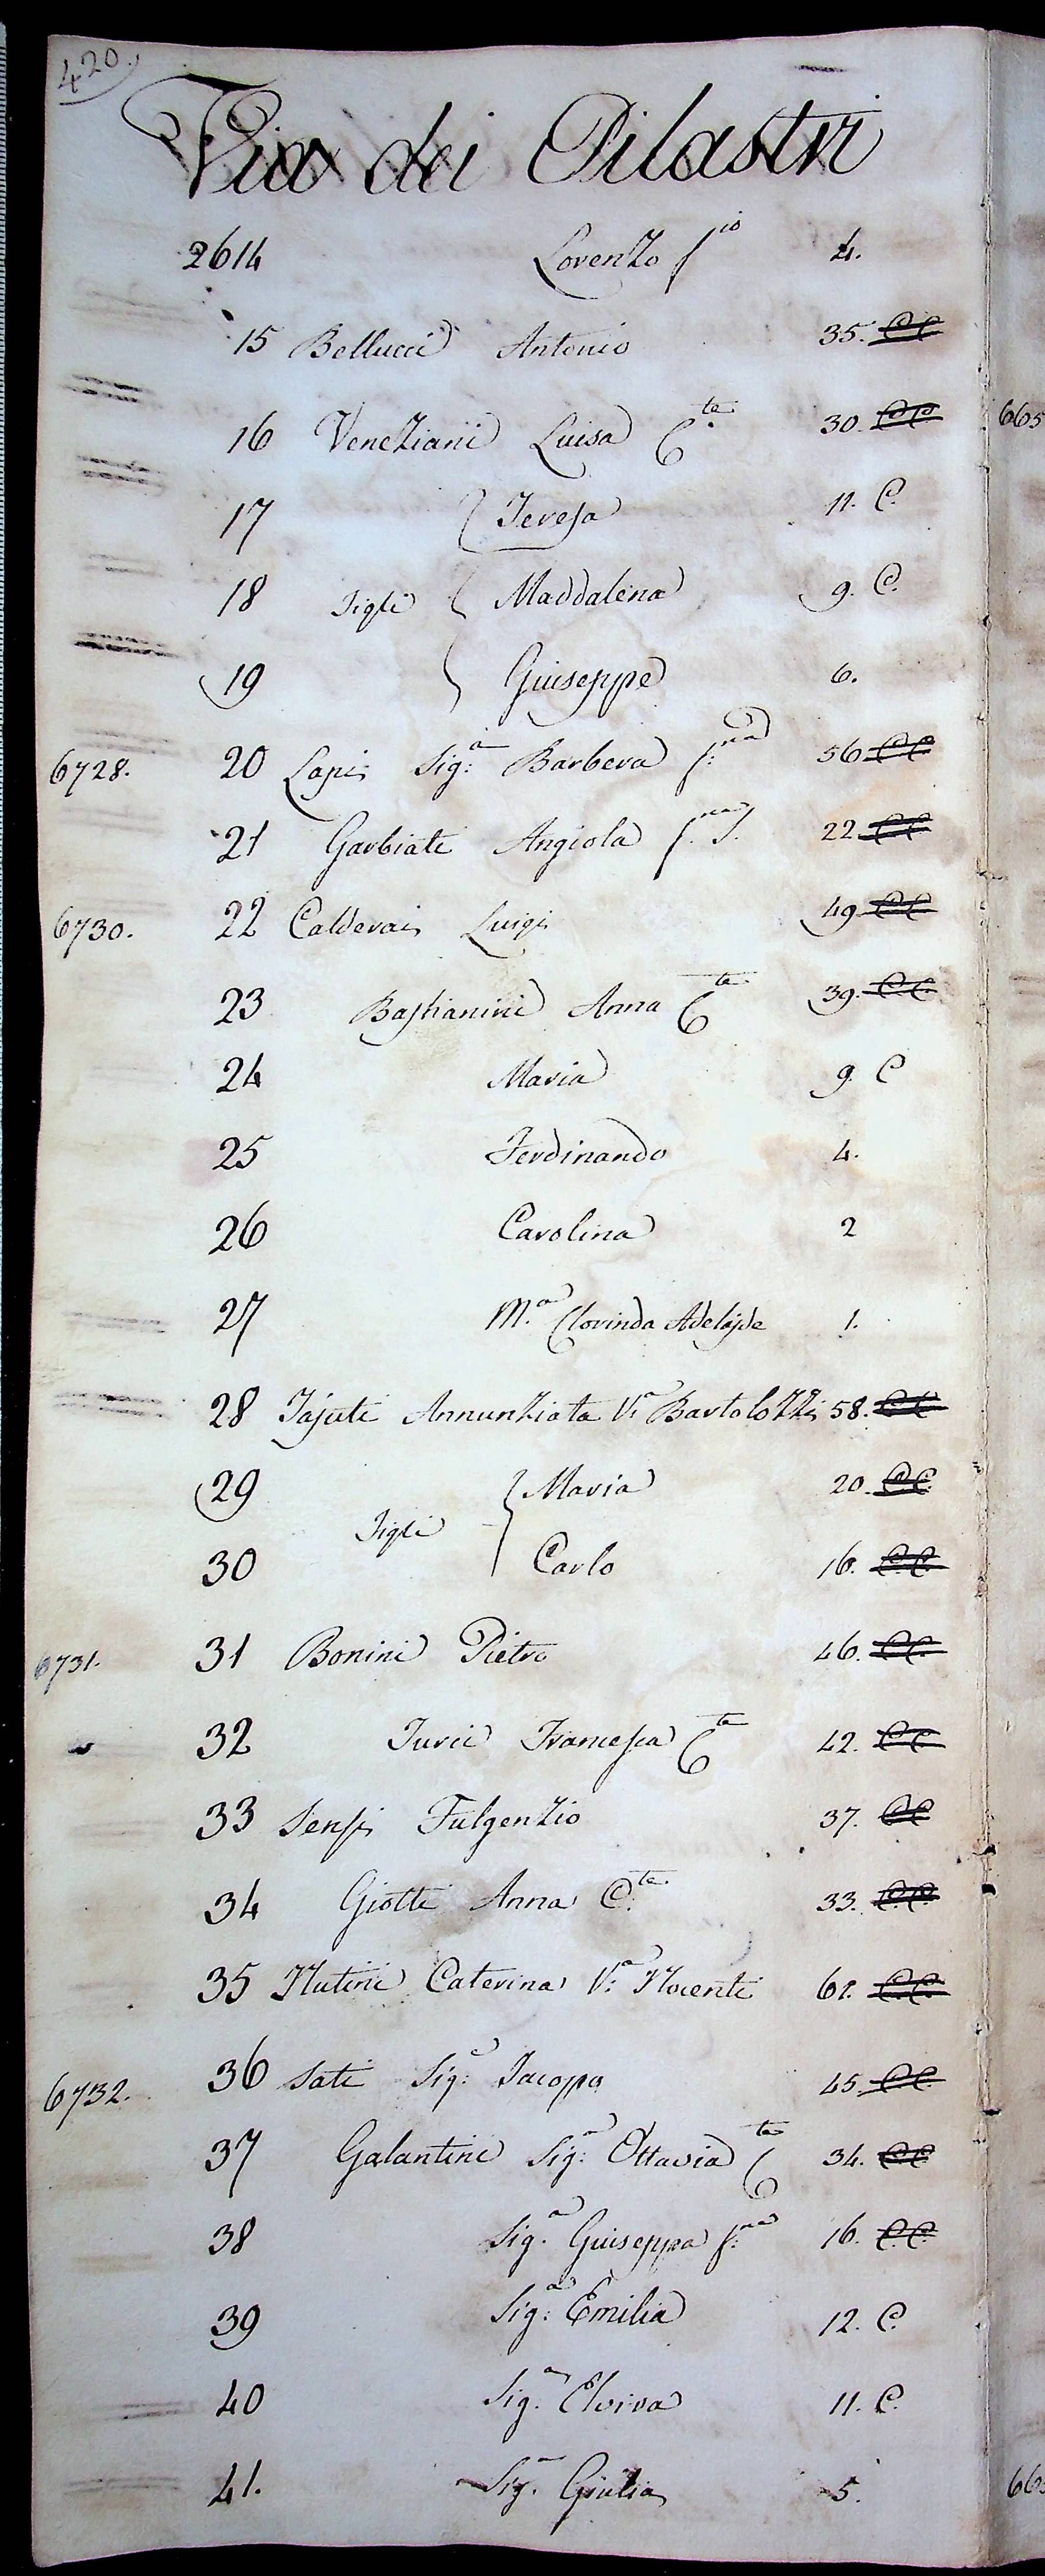 420.
Via dei Pilastri
2614 Lorenzo f.io 4.
15 Bellucci Antonio 35. CC
16 Veneziani Luisa C.ta 30. CC
17 Teresa 11. C.
18 Figli Maddalena 9. C.
19 Giuseppe 6.
6728. 20 Lapi Sig:a Barbera f:na 56. CC
21 Garbiati Angiola f.na S. 22. CC
6730. 22 Calderai Luigi 49. CC
23 Bastianini Anna C.ta 39. CC
24 Maria 9. C
25 Ferdinando 4.
26 Carolina 2
27 M.a Clorinda Adelajde 1.
28 Annunziata V.a Bartolozzi 58. CC
29 Maria 20. CC
Figli
30 Carlo 16. CC
6731. 31 Bonini Pietro 46. CC
32 Turci Francesca C.ta 42. CC
33 Sensi Fulgenzio 37. CC
34 Giotti Anna C.ta 33. CC
35 Caterina V:a 61. CC
6732. 36 Sati Sig:e Jacopo 45. CC
37 Galantini Sig:a Ottavia C.ta 34. CC
38 Sig.a Giuseppa f:na 16. CC
39 Sig:a Emilia 12. C.
40 Sig.a Elvira 11. C.
41. Sig.a Giulia 5.